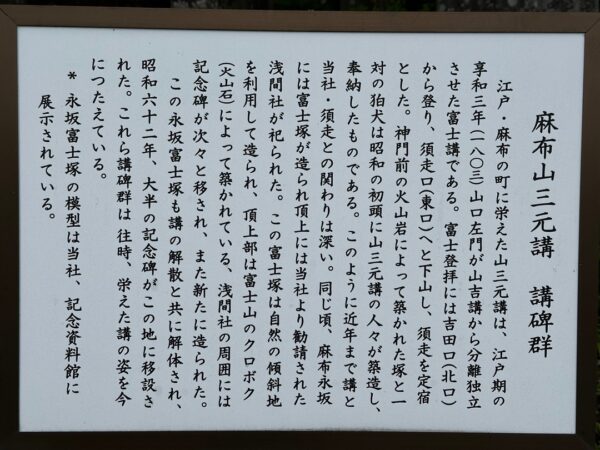 麻布山三元講　講碑群
江戸・麻布の町に栄えた山三元講は、江戸期の
享和三年(一八〇三)山口左門が山吉講から分離独立
させた富士講である。富士登拝には吉田口(北口)
から登り、須走口(東口)へと下山し、須走を定宿
とした。神門前の火山岩によって築かれた塚と一
対の狛犬は昭和の初頭に山三元講の人々が築造し、
奉納したものである。このように近年まで講と
当社・須走との関わりは深い。同じ頃、麻布永坂
には富士塚が造られ頂上には当社より勧請された
浅間社が祀られた。この富士塚は自然の傾斜地
を利用して造られ、頂上部は富士山のクロボク
(火山石)によって築かれている、浅間社の周囲には
記念碑が次々と移され、また新たに造られた。
この永坂富士塚も講の解散と共に解体され、
昭和六十二年、大半の記念碑がこの地に移設さ
れた。これら講碑群は往時、栄えた講の姿を今
につたえている。
＊永坂富士塚の模型は当社、記念資料館に
展示されている。